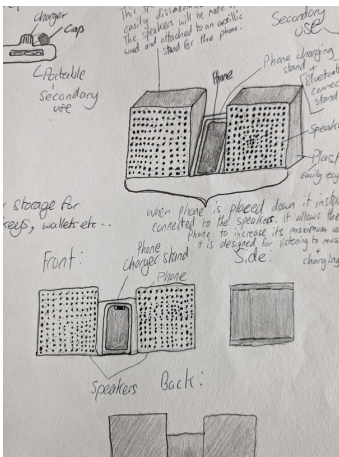 charger
Cap
Portable
Secondary
use
easily
The speakers will be made
wood and attached to an acrillic
stand for the phone.
Secondary
use
Phone
Phone charging
stand +
connec
stand
Speake
Plast
Easily
storage for
keys, wallets etc..
When phone is placed down it insta
connected to the speakers. it allows the
phone to increase its maximum
it is designed for listening to
+
charging
Front:
Phone
Charger stand
Phone
Side:
Speakers
Back: